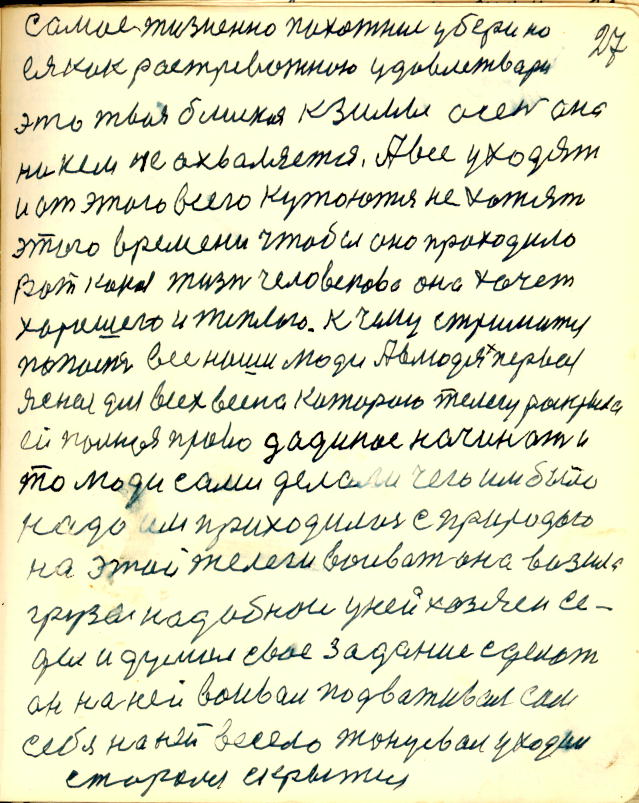 27
самое жизненно похотние убери но
ся как растревожною удовлетвари
это твоя близкая к Зимли осень она
ни кем не охваляется. А все уходят
и от этого всего кутоются не хотят
этого времени чтобы оно проходило
Вот кокая жизн человекова она хочет
харешего и теплого. К чему стримится
попасть все наши люди А в людях первая
ясная для всех весна которою телегу раскрыла
ей полная право дадиное начинать и
то люди сами делали чего им было
надо им приходился с природою
на этой телеги воиват она возила
грузы надобное у ней хозяен се-
дел и думал свое задание сделат
он на ней воивал подваживал сам
себя на ней весело тонцевал уходил
старался скрытися